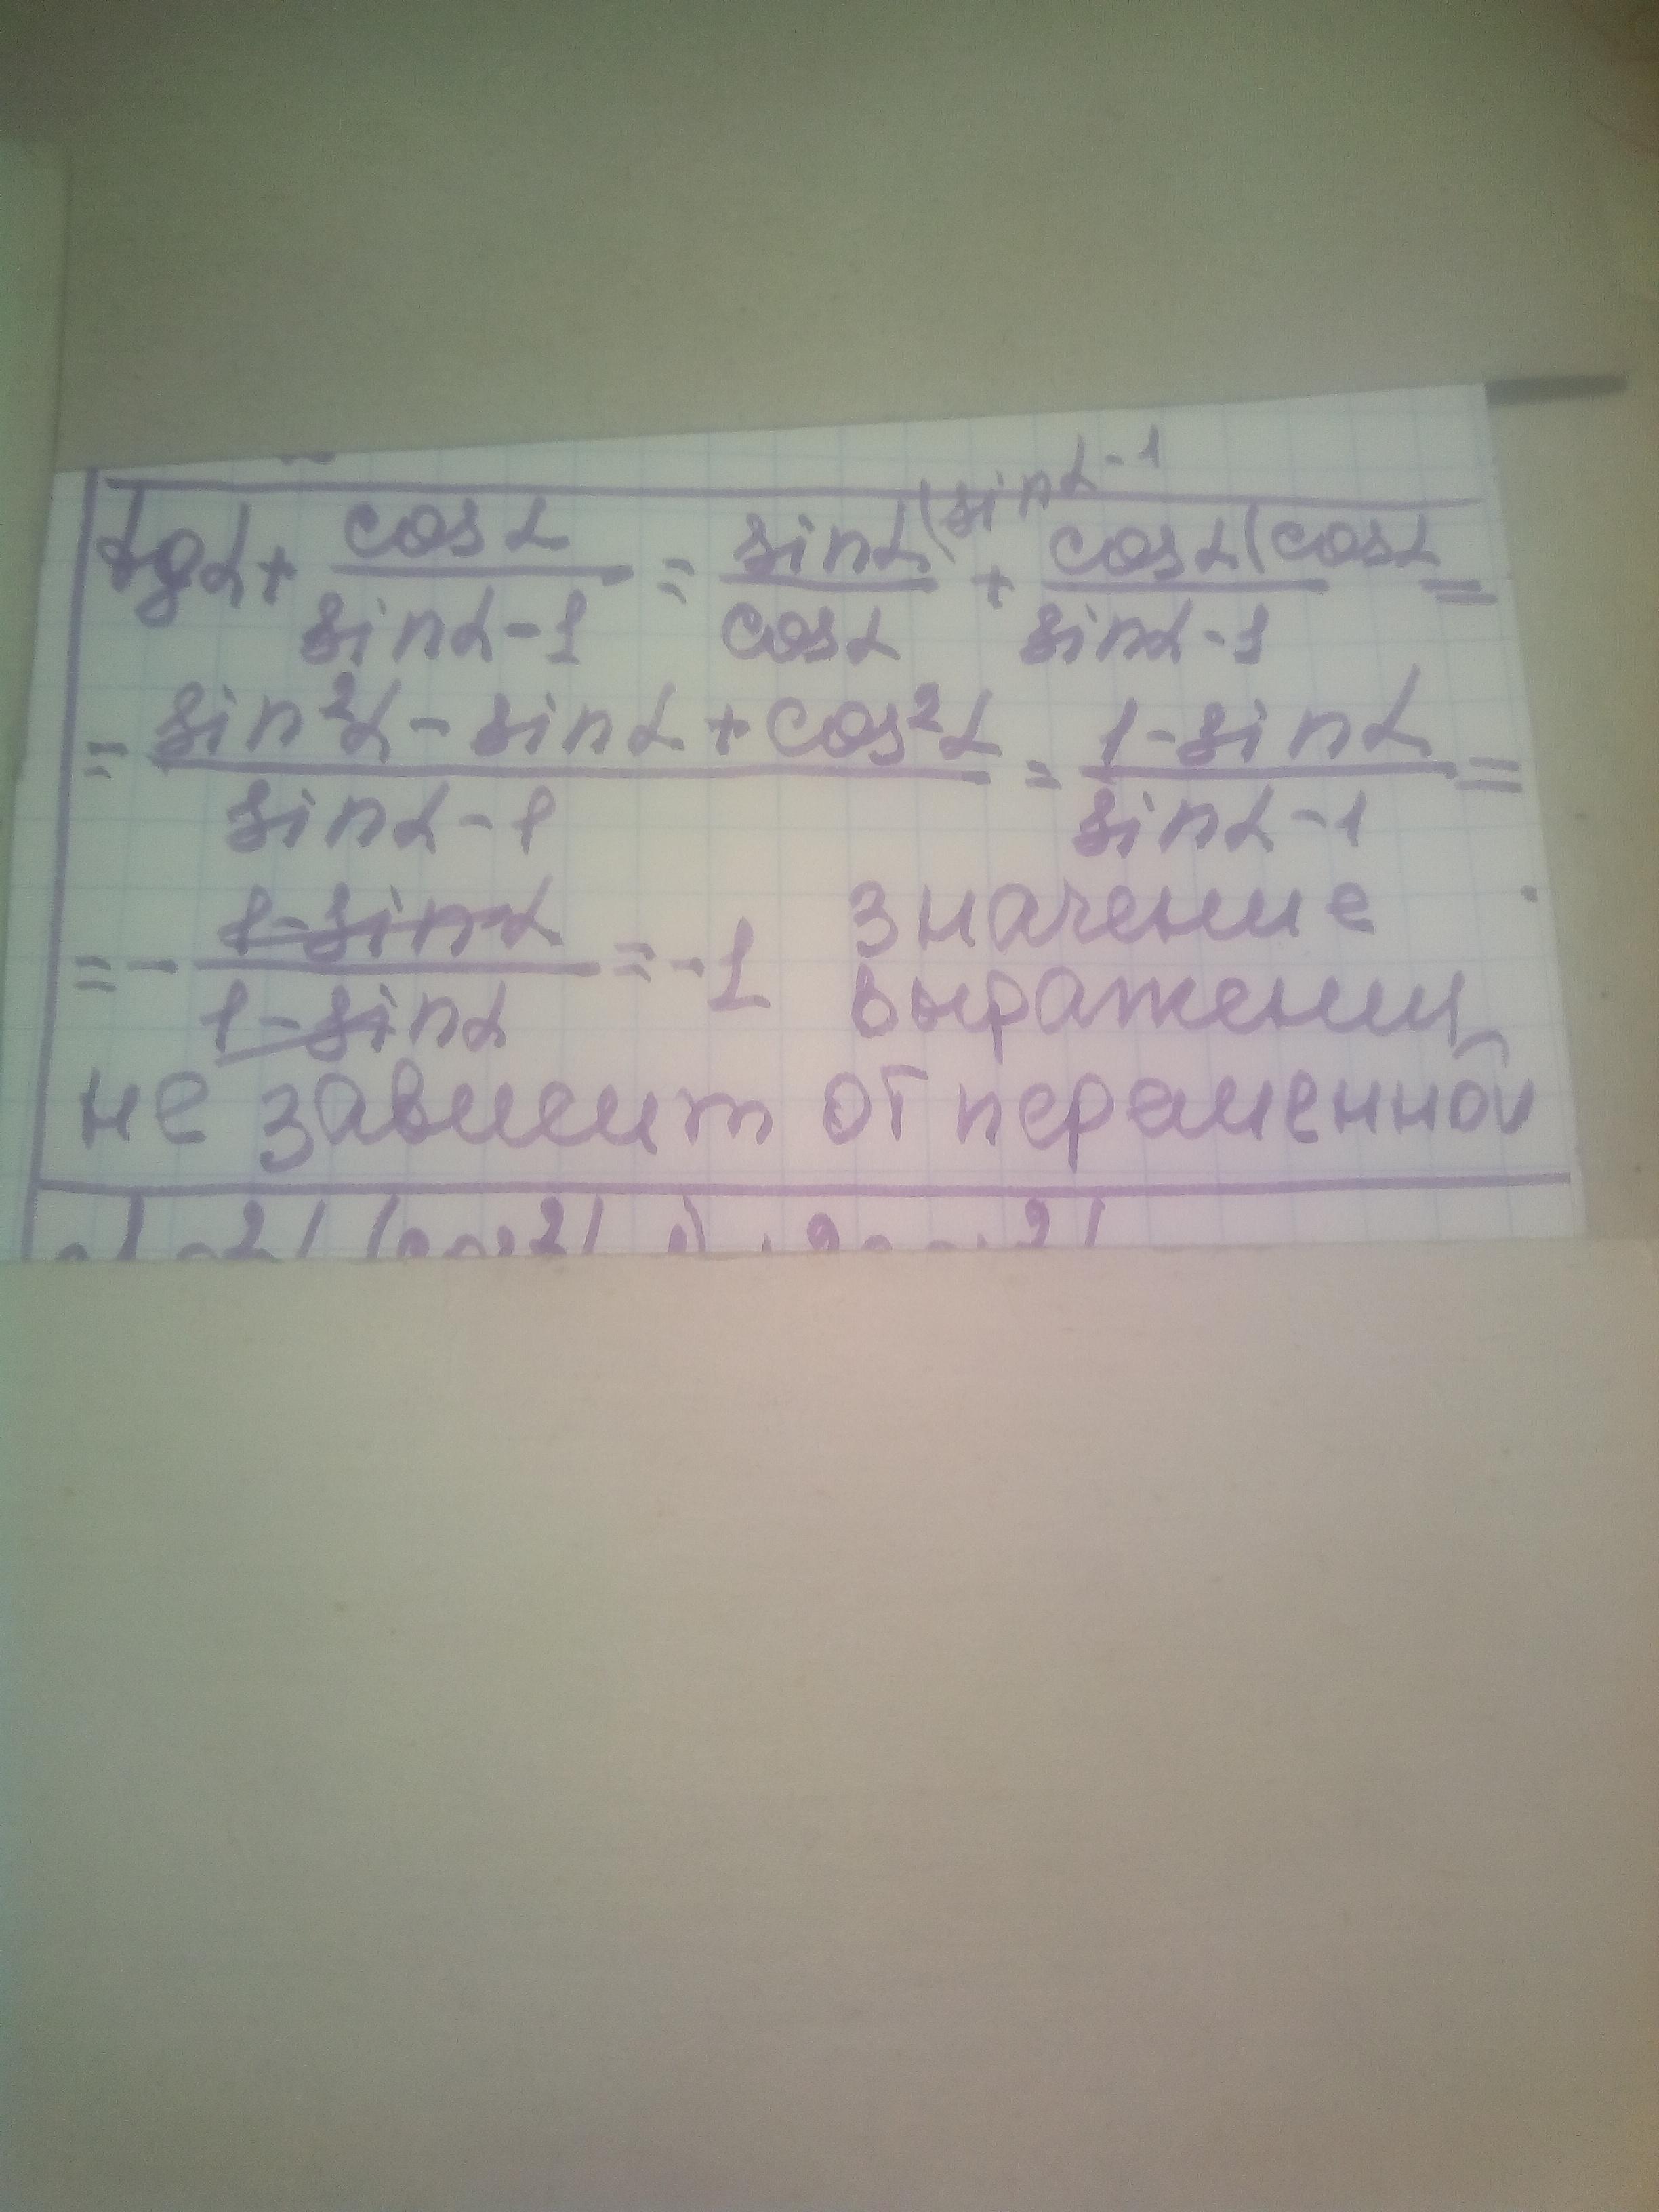 tgα + cosα/(sinα-1) = sinα(sinα-1/cosα + cosα(cosα/(sinα-1) =
= (sin²α - sinα + cos²α)/(sinα-1) = (1-sinα)/(sinα-1) =
= - (1-sinα)/(1-sinα) = -1 значение
выражений
не зависит от переменной